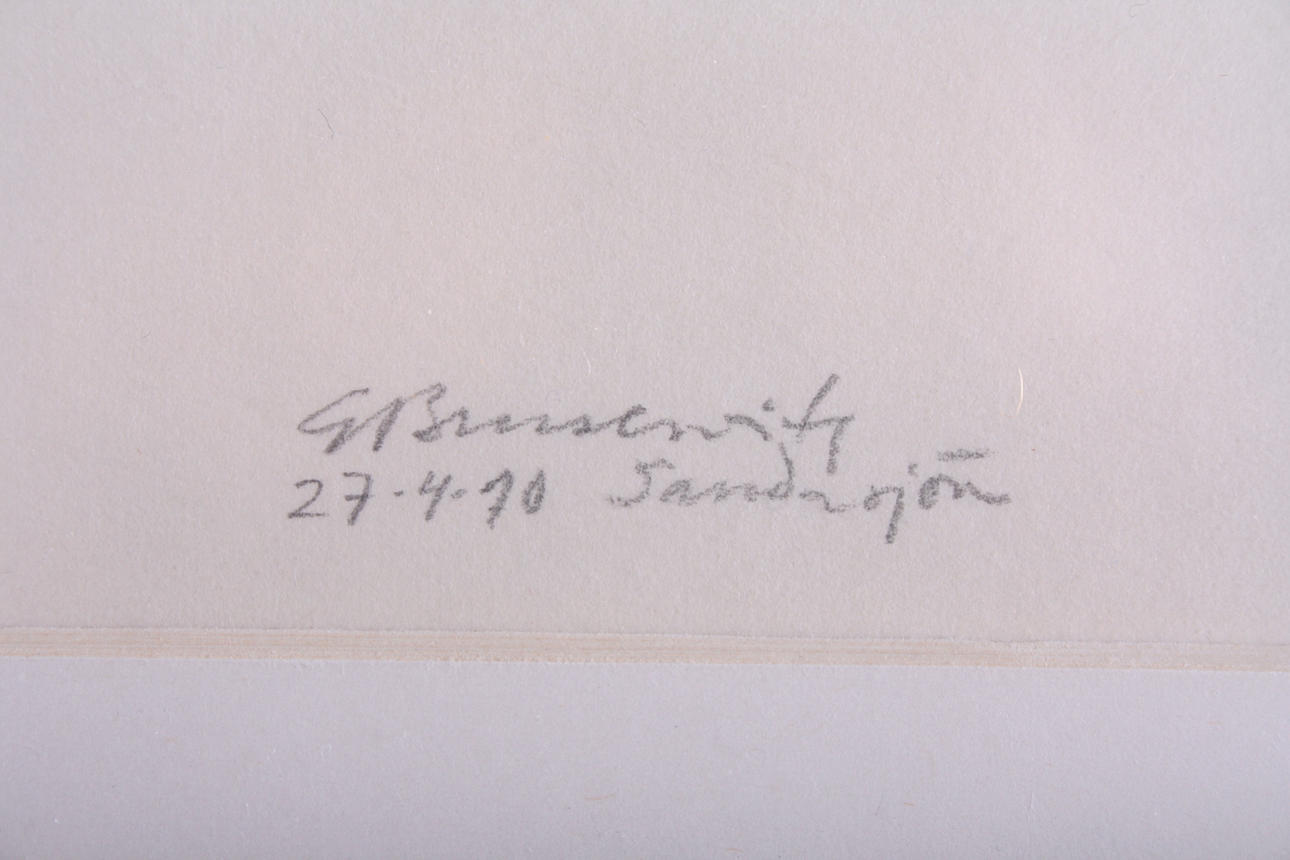 GBrusewitz
27.4.70 Sandasjön